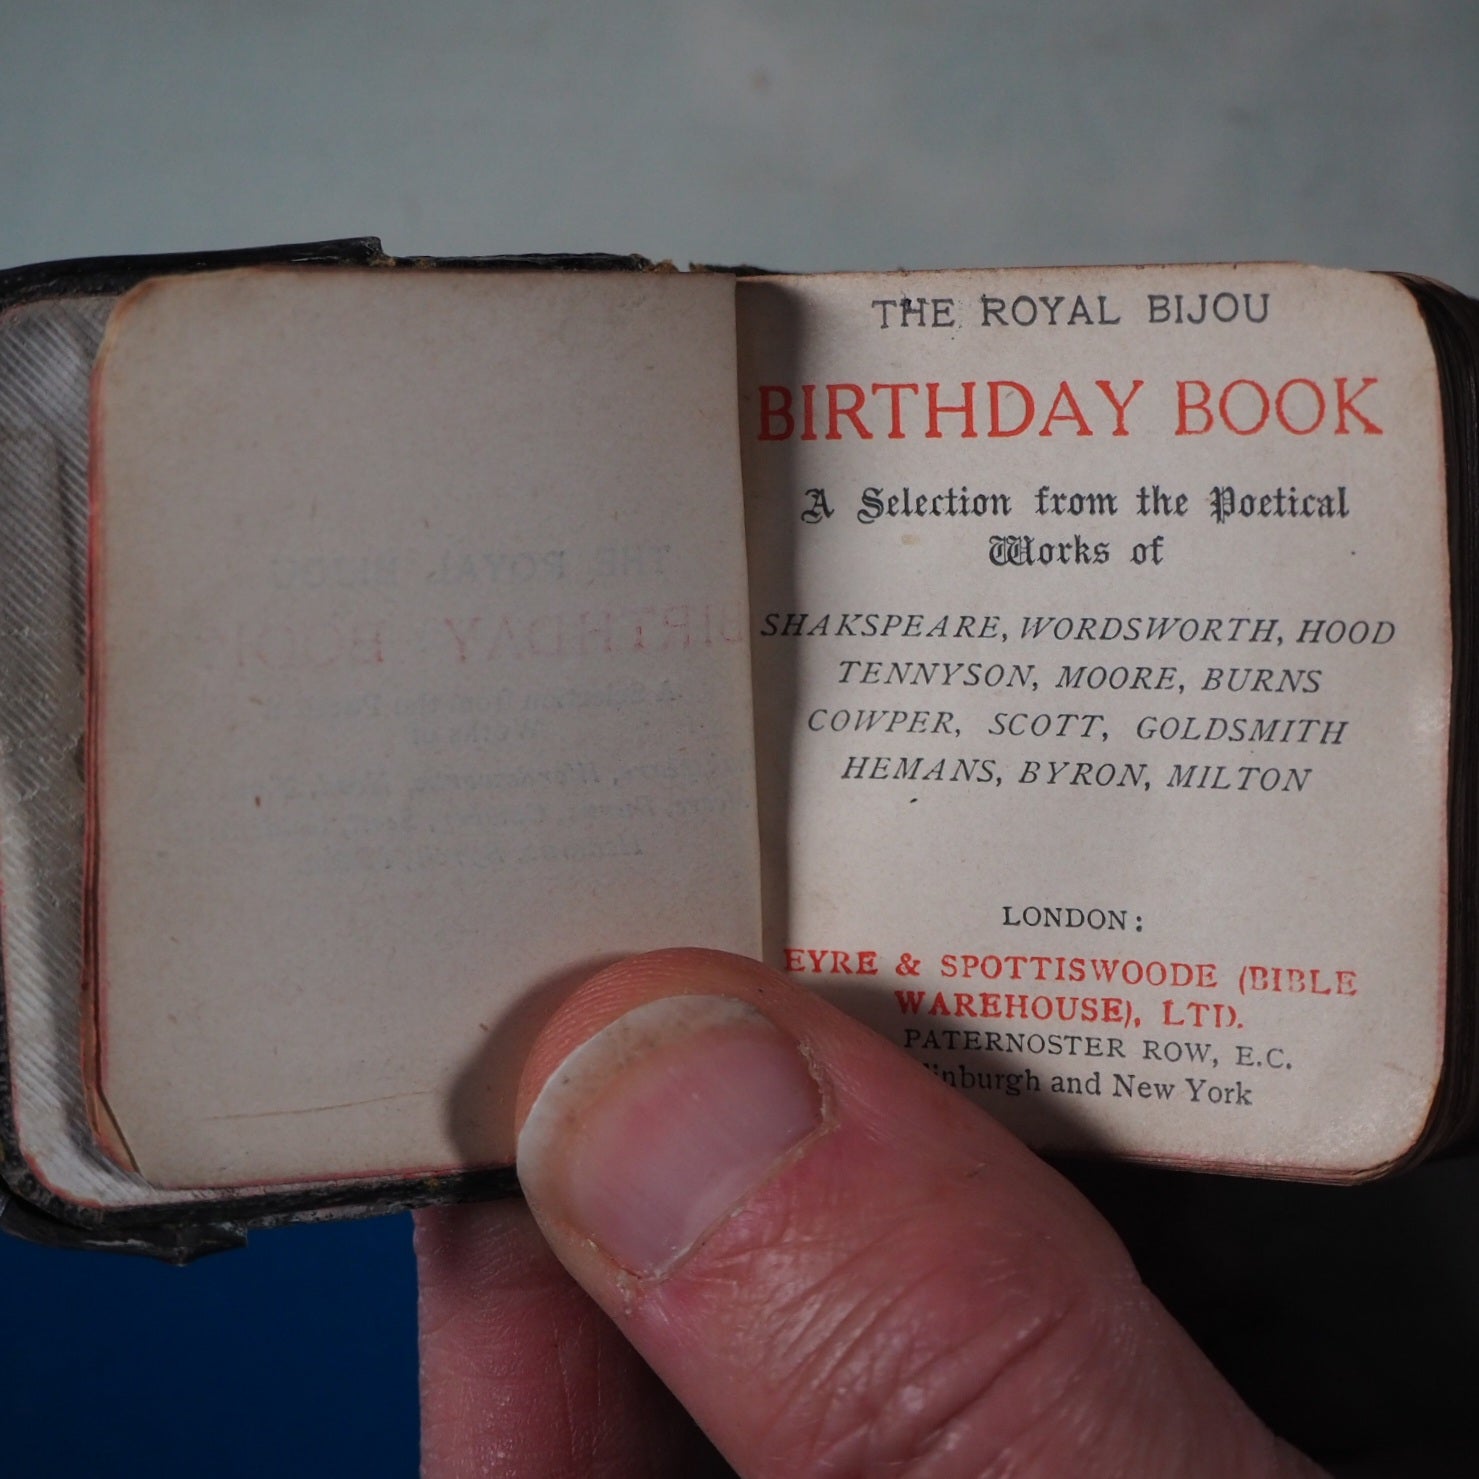 THE ROYAL BIJOU
BIRTHDAY BOOK
A Selection from the Poetical
Works of
SHAKSPEARE, WORDSWORTH, HOOD
TENNYSON, MOORE, BURNS
COWPER, SCOTT, GOLDSMITH
HEMANS, BYRON, MILTON
LONDON:
EYRE & SPOTTISWOODE (BIBLE
WAREHOUSE), LTD.
PATERNOSTER ROW, E.C.
and New York